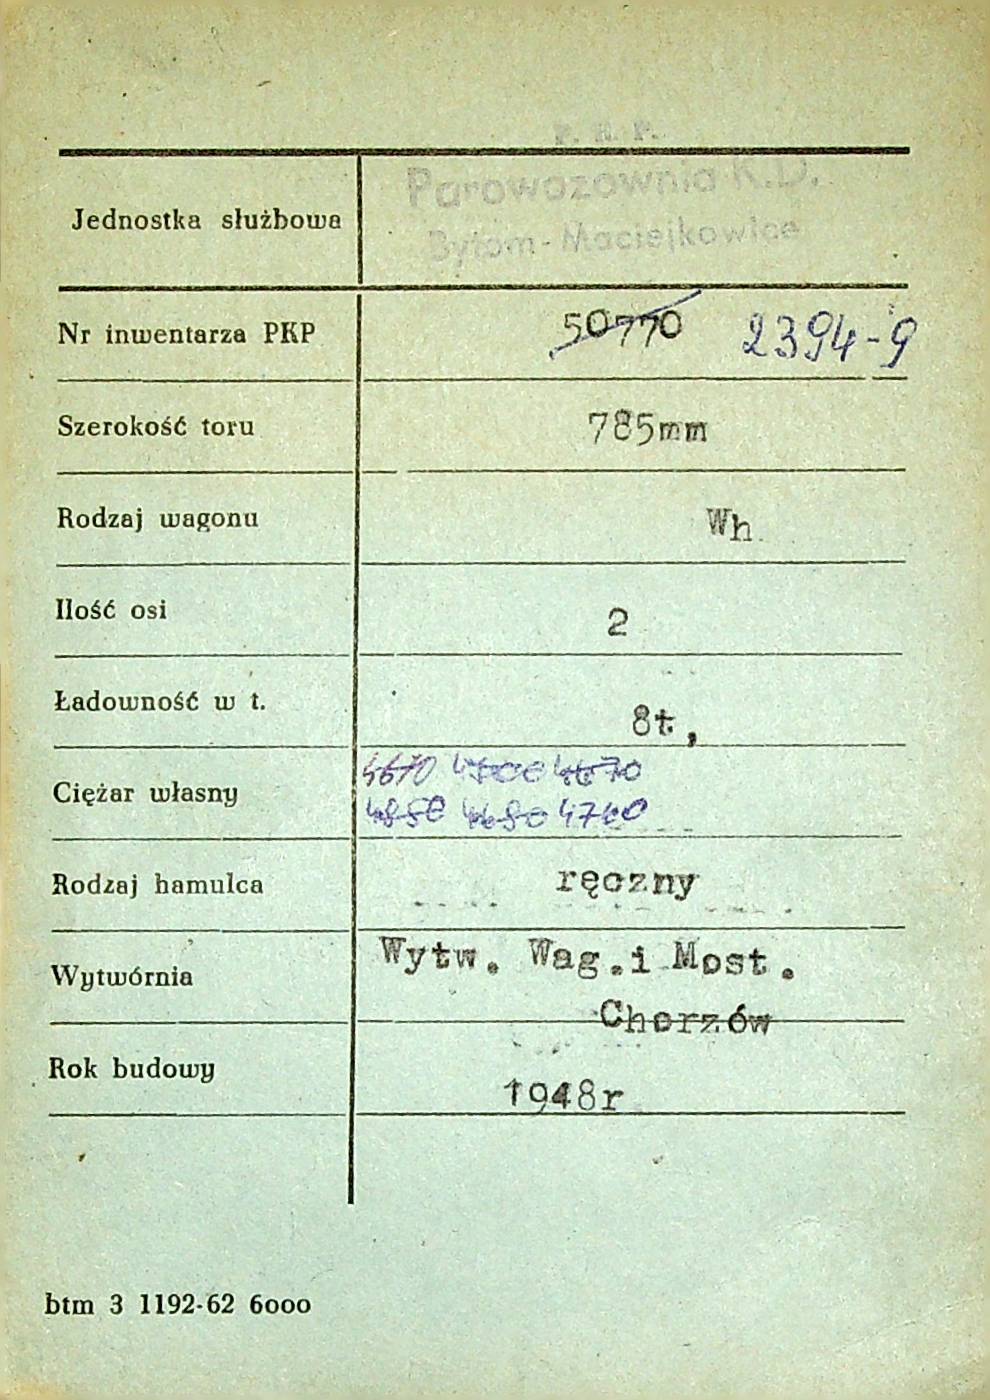 P. K. P.
Parowozownia K.D.
Bytom-Maciejkowice
Jednostka służbowa
Nr inwentarza PKP 50770 2394-9
Szerokość toru 785mm
Rodzaj wagonu Wh
Ilość osi 2
Ładowność w t. 8t,
Ciężar własny 4670 4670
4680 4760
Rodzaj hamulca ręczny
Wytwórnia Wytw. Wag.i Most.
Chorzów
Rok budowy 1948r
btm 3 1192-62 6ooo